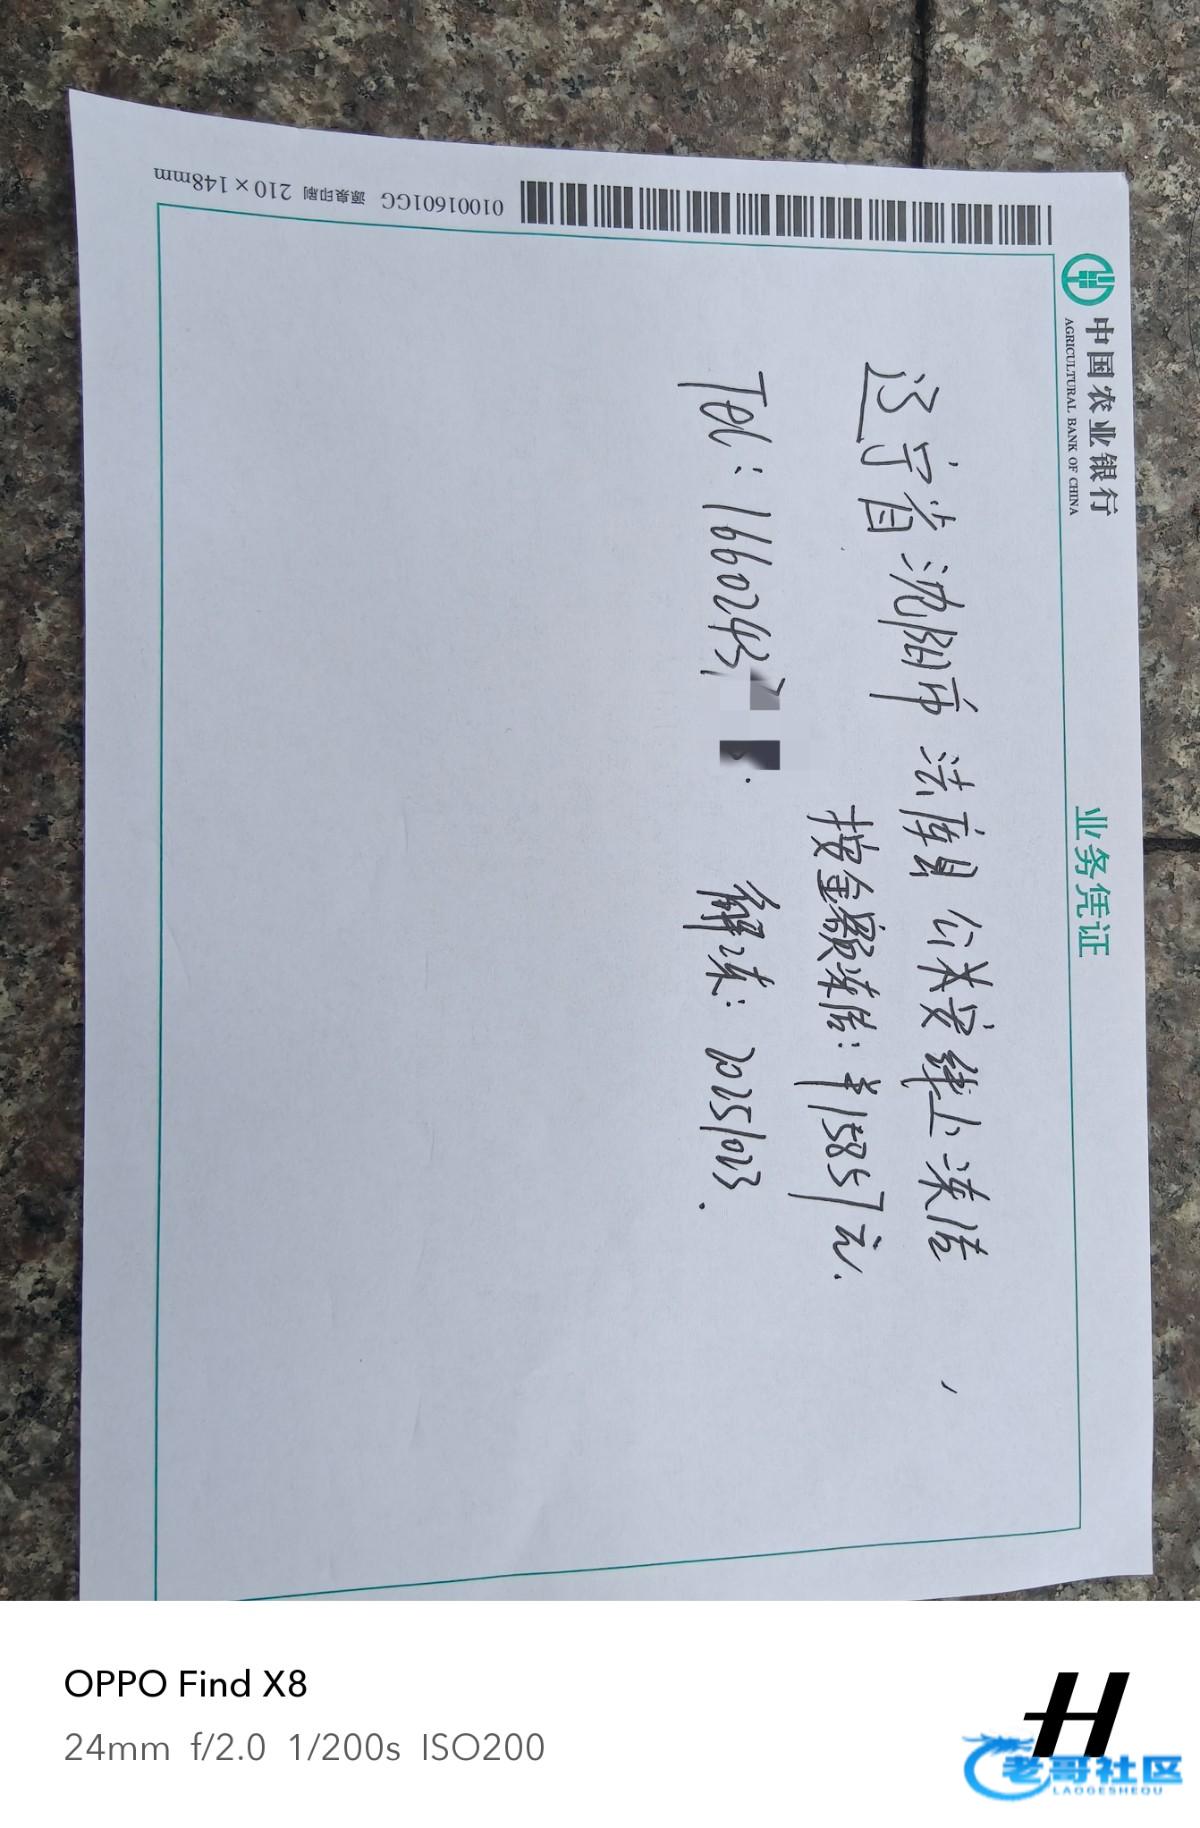 中国农业银行
AGRICULTURAL BANK OF CHINA
业务凭证
辽宁省沈阳市法库县公安线上冻结
按金额冻结：¥15857元.
Tel：1660243
解冻：20251023.
01001601GG 源泉印刷 210×148mm
OPPO Find X8
24mm f/2.0 1/200s ISO200
老哥社区
LAOGESHEQU